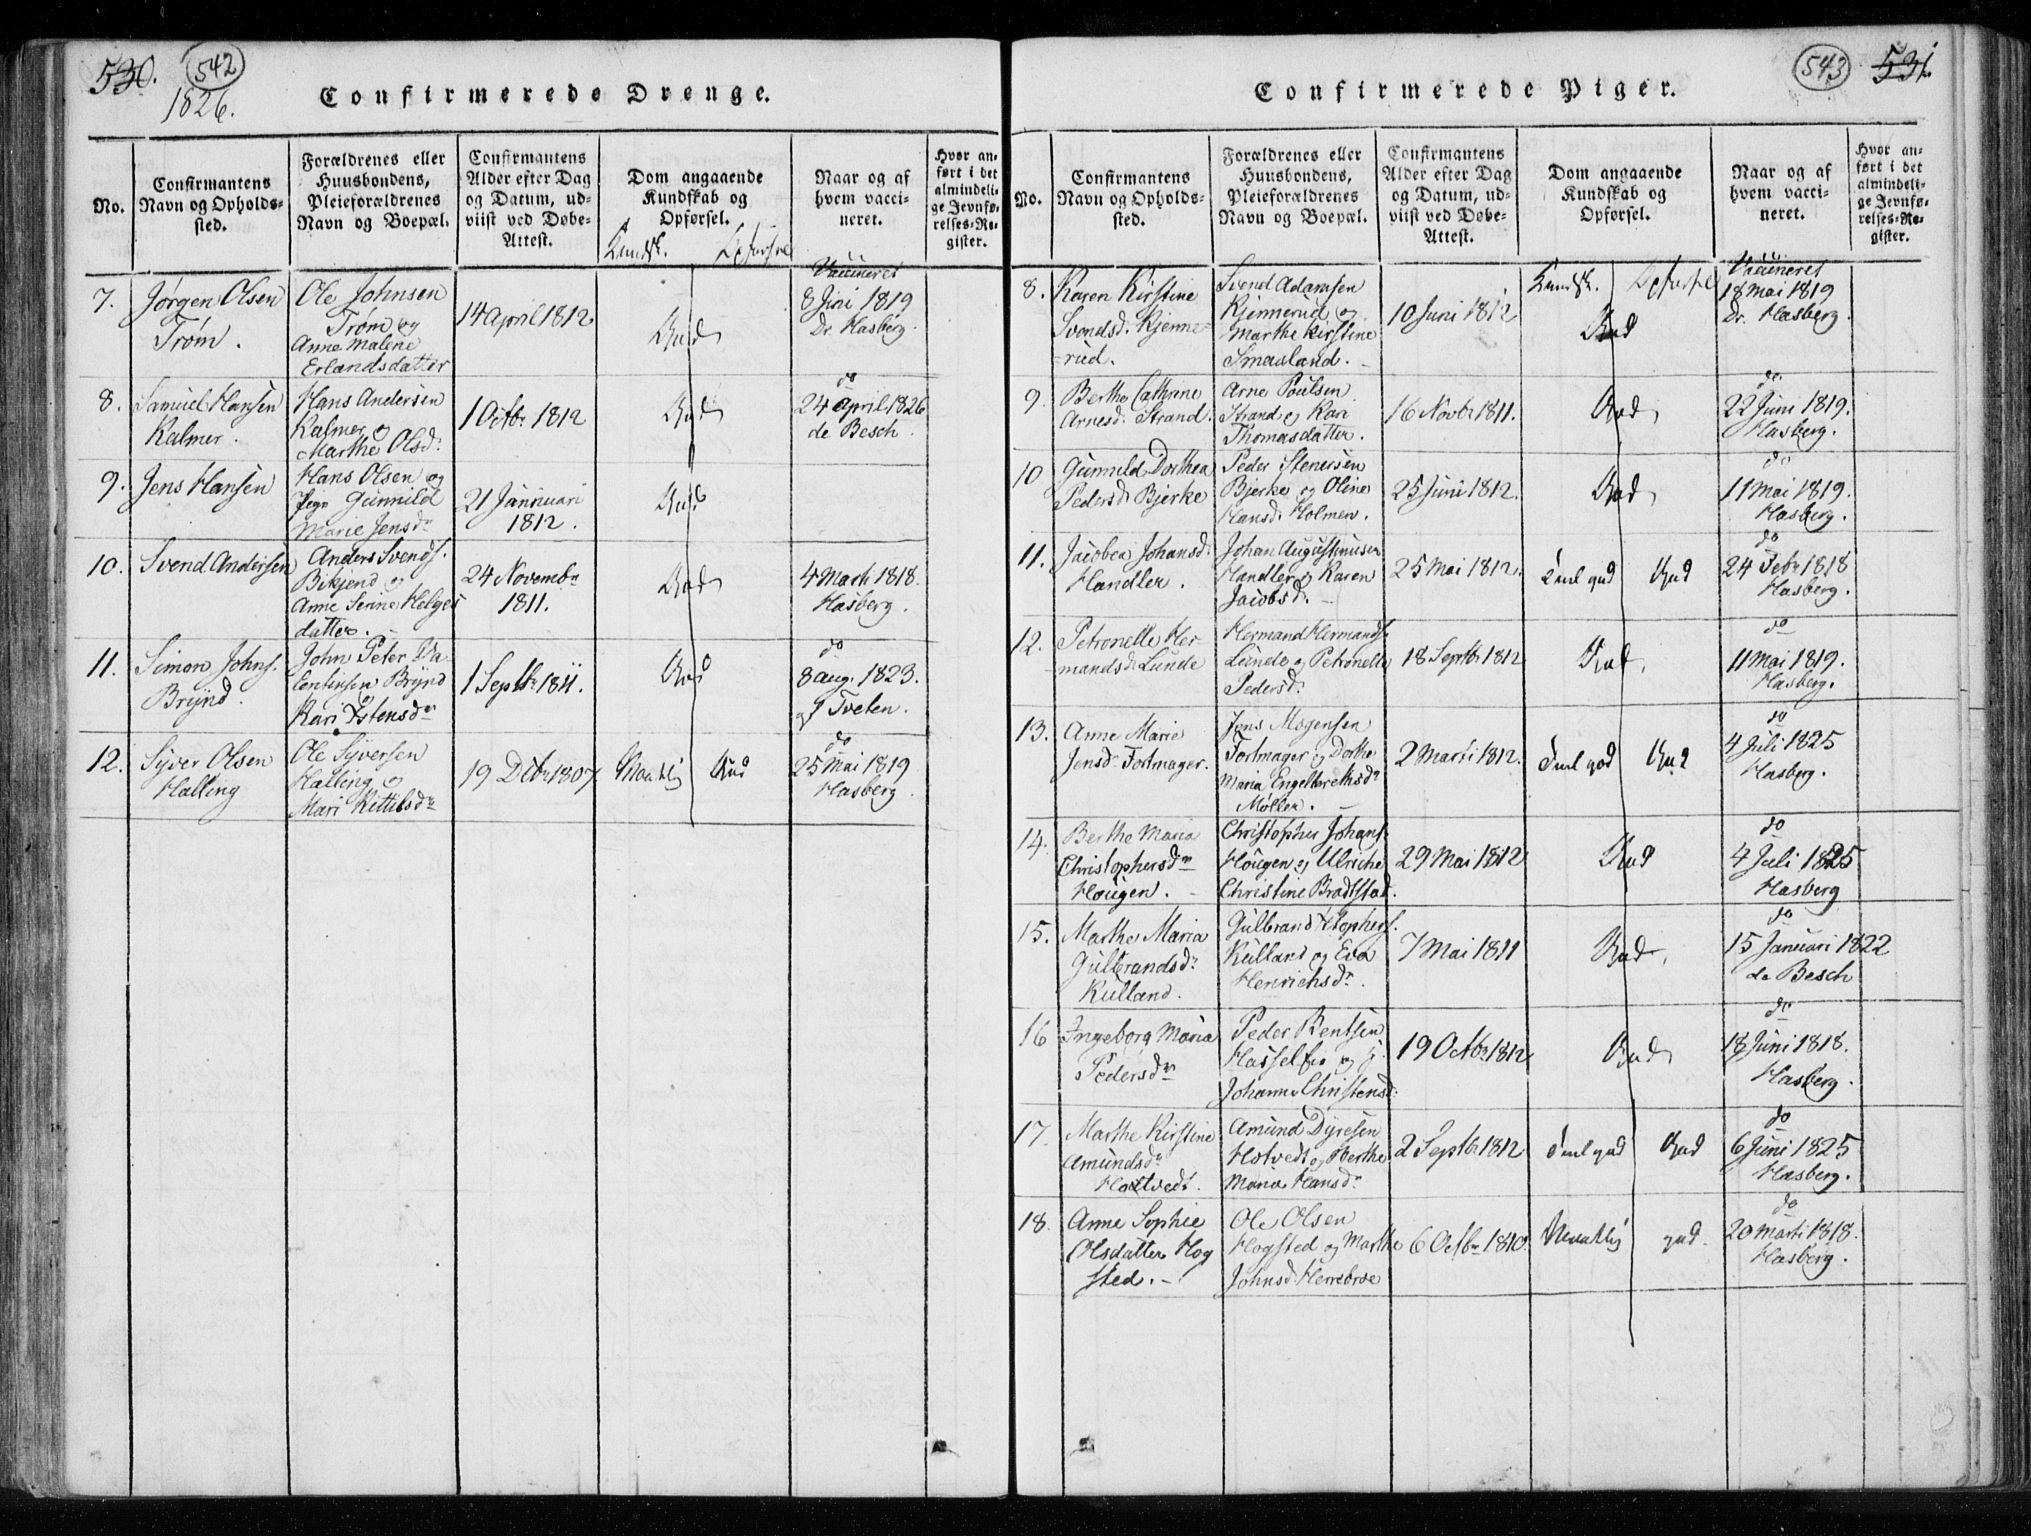 530.
542
1826.
Confirmerede Drenge.
No.
Confirmantens
Navn og Opholds-
sted.
Forældrenes eller
Huusbondens,
Pleieforældrenes
Navn og Boepæl.
Confirmantens
Alder efter Dag
og Datum, ud-
viist ved Døbe-
Attest.
Dom angaaende
Kundskab og
Opførsel.
Kundsk. Opførsel
Naar og af
hvem vacci-
neret.
Hvor an-
ført i det
almindeli-
ge Jevnfø-
relses-Re-
gister.
7.
Jørgen Olsen
Trøm.
Ole Johnsen
Trøm og
Anne Malene
Erlandsdatter
14 April 1812
Gud
Vaccineret
8 Juni 1819
Dr. Hasberg.
8.
Samuel Hansen
Kalmer.
Hans Andersen
Kalmer og
Marthe Olsd:
1 Octbr 1812
God
do
24 April 1826
de Besch.
9.
Jens Hansen
Hans Olsen og
Pige Gunnild
Marie Jensdr
21 Januari
1812.
God
10.
Svend Andersen
Anders Svends.
Bikjend og
Anne Senne Helges
datter.
24 Novembr
1811.
God
4 Marti 1818.
Hasberg.
11.
Simon Johns.
Brynd.
John Peter
Brynd
Kari Istensdr
1 Septbr 1811.
God
do
8 Aug. 1823.
af Tveten.
12.
Syver Olsen
Halling
Ole Syversen
Halling og
Mari Kittilsdr
19 Decbr 1807
Maatlig Gud
do
25 Mai 1819
Hasberg.
543
531
Confirmerede Piger.
No.
Confirmantens
Navn og Opholds-
sted.
Forældrenes eller
Huusbondens,
Pleieforældrenes
Navn og Boepæl.
Confirmantens
Alder efter Dag
og Datum, ud-
viist ved Døbe-
Attest.
Dom angaaende
Kundskab og
Opførsel.
Naar og af
hvem vacci-
neret.
Hvor an-
ført i det
almindeli-
ge Jevnfø-
relses-Re-
gister.
8.
Karen Kirstine
Svendsd: Kjenne-
-rud.
Svend Adamsen
Kjennerud og
Marthe Kirstine
Smaaland.
10 Juni 1812
Kundsk. Opførsel
God
Vaccineret
18 Mai 1819
Dr. Hasberg.
9.
Berthe Cathrine
Arnesd: Strand.
Arne Poulsen
Strand og Kari
Thomasdatter.
16 Novbr 1811.
God
do.
22 Juni 1819.
Hasberg.
10
Gunnild Dorthea
Pedersd: Bjerke
Peder Stenersen
Bjerke og Oline
Hansd: Holmen.
25 Juni 1812.
God
do
11 Mai 1819.
Hasberg.
11.
Jacobea Johansd:
Handler.
Johan Augustinusen
Handler og Karen
Jacobsd:
25 Mai 1812.
Taal. gud God
do
24 Febr 1818
Hasberg.
12.
Petronelle Her
mandsd: Lunde
Hermand Hermands.
Lunde og Petronelle
Pedersd:
18 Septbr 1812
God.
do
11 Mai 1819.
Hasberg.
13.
Anne Marie
Jensdr Fortmager.
Jens Mogensen
Fortmager og Dorthe
Maria Engelbrethsdr
Møller.
2 Marti 1812.
Taal. god God
do
4 Juli 1825
Hasberg.
14.
Berthe Maria
Christophersdr
Hougen.
Christopher Johans.
Hougen og Ulriche
Christine Bradtstad.
29 Mai 1812
God
do
4 Juli 1825
Hasberg
15.
Marthe Maria
Gulbrandsdr
Kulland.
Gulbrand Xstophers.
Kulland og Eva
Henrichsdr.
7 Mai 1811
God.
do
15 Januari 1822
de Besch
16
Ingeborg Maria
Pedersdr
Peder Bentsen
og
Johanne Christensd:
19 Octbr 1812
God
do
18 Juni 1818.
Hasberg.
17.
Marthe Kirstine
Amundsdr
Hotvedt.
Amund Dyresen
Hotvedt og Berthe
Maria Hansdr
2 Septbr 1812
Taal. gud God
do
6 Juni 1825
Hasberg.
18.
Anne Sophie
Olsdatter Hog
sted.
Ole Olsen
Hogsted og Marthe
Johnsd: Herrebroe
6 Octbr 1810.
Maatlig god.
do
20 Marti 1818.
Hasberg.